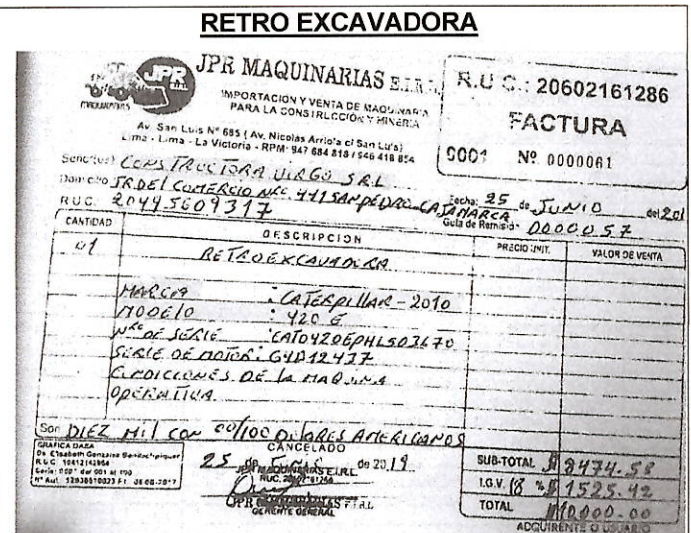 RETRO EXCAVADORA
JPR
MAQUINARIAS
JPR MAQUINARIAS E.I.R.L.
IMPORTACION Y VENTA DE MAQUINARIA
PARA LA CONSTRUCCIÓN Y MINERIA
Av. San Luis Nº 685 ( Av. Nicolas Arriola c/ San Luis)
Lima - Lima - La Victoria - RPM: 947 684 818 / 946 418 854
R.U.C.: 20602161286
FACTURA
0001 Nº 0000061
Señor(es) CONSTRUCTORA VIRGU SRL
Domicilio JR DEL COMERCIO Nro 441 SAN PEDRO - CAJAMARCA
Fecha: 25 de JUNIO del 201
R.U.C. 20445609317
Guia de Remisión 0000057
CANTIDAD DESCRIPCION PRECIO UNIT. VALOR DE VENTA
01 RETROEXCAVADORA
MARCA : CATERPILLAR - 2010
MODELO : 420 E
Nro DE SERIE : CAT0420EPHLS03670
SERIE DE MOTOR: G4D12437
CONDICIONES DE LA MAQUINA
OPERATIVA
Son DIEZ MIL CON 00/100 DOLARES AMERICANOS
GRAFICA DAZA
De Elisabeth Gonzales
R.U.C. 10412142964
Serie: 0001 del 001 al 100
CANCELADO
25 de JUNIO de 2019
JPR MAQUINARIAS E.I.R.L.
GERENTE GENERAL
SUB-TOTAL $ 8474.58
I.G.V. 18 % $ 1525.42
TOTAL $ 10,000.00
ADQUIRENTE O USUARIO